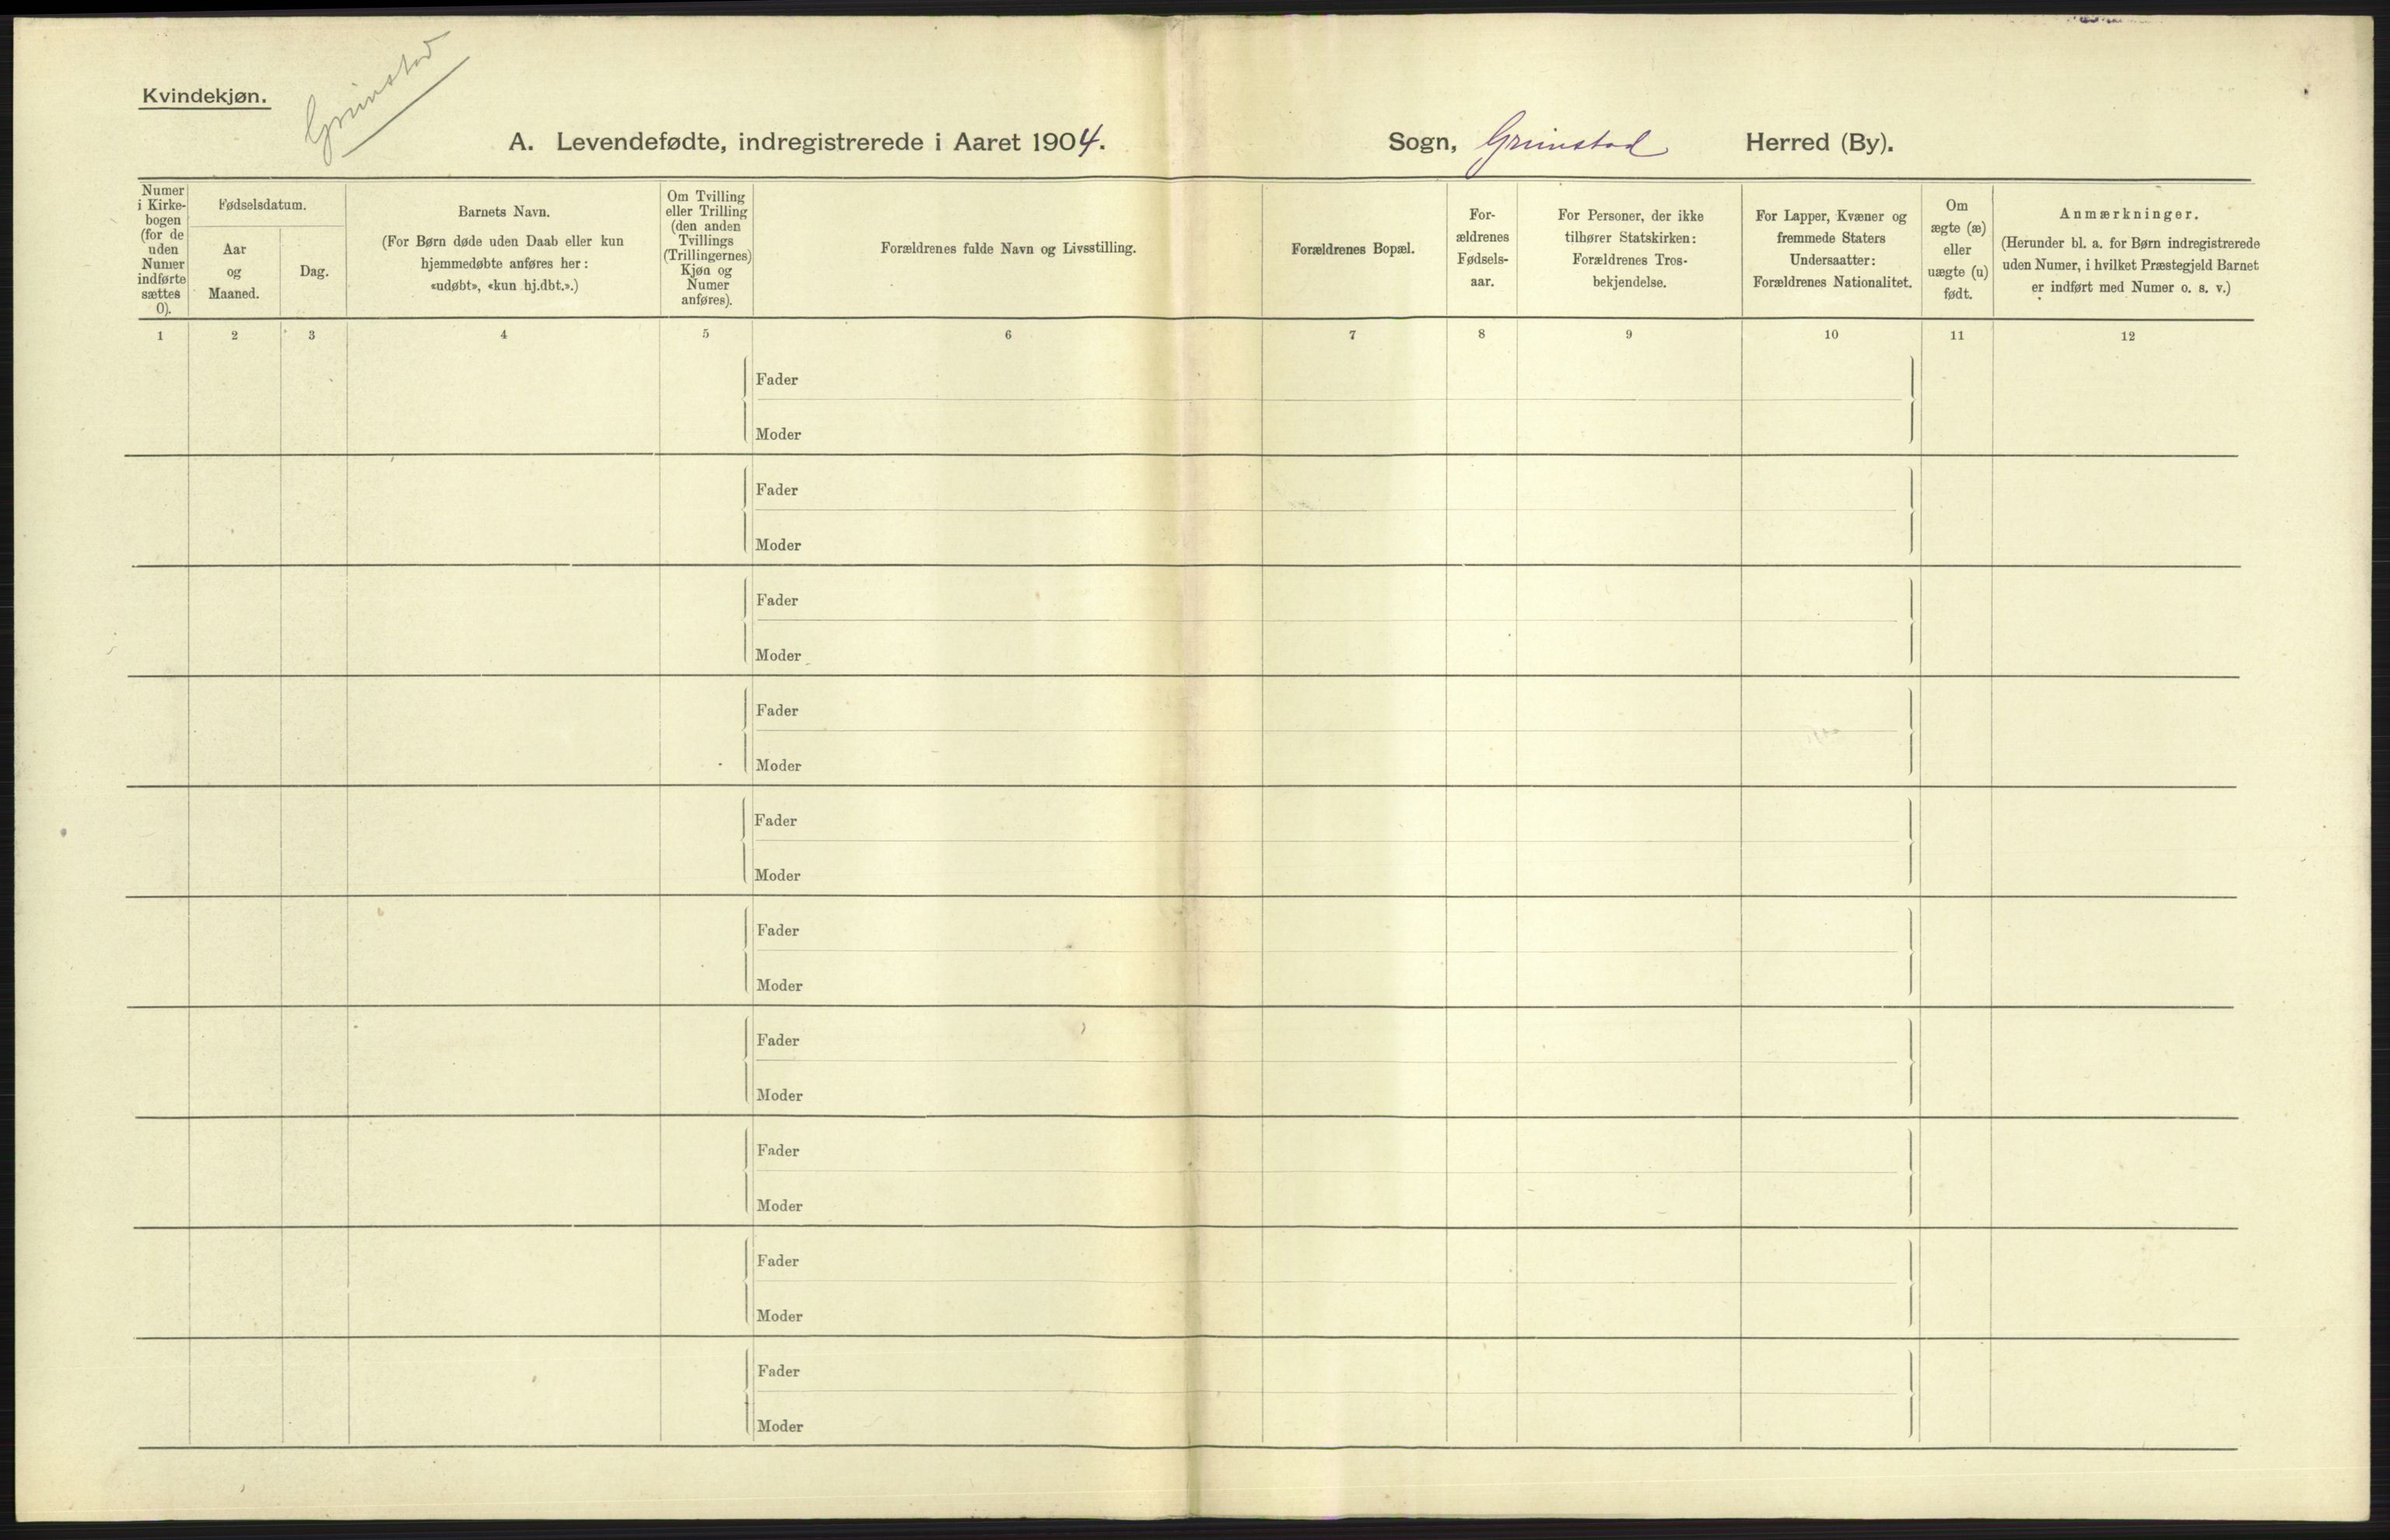 Kvindekjøn.
Grimstad
A. Levendefødte, indregistrerede i Aaret 1904.
Sogn, Grimstad Herred (By).
Numer
i Kirke-
bogen
(for de
uden
Numer
indførte
sættes
0).
Fødselsdatum.
Aar
og
Maaned.
Dag.
Barnets Navn.
(For Børn døde uden Daab eller kun
hjemmedøbte anføres her:
«udøbt», «kun hj.dbt.».)
Om Tvilling
eller Trilling
(den anden
Tvillings
(Trillingernes)
Kjøn og
Numer
anføres).
Forældrenes fulde Navn og Livsstilling.
Forældrenes Bopæl.
For-
ældrenes
Fødsels-
aar.
For Personer, der ikke
tilhører Statskirken:
Forældrenes Tros-
bekjendelse.
For Lapper, Kvæner og
fremmede Staters
Undersaatter:
Forældrenes Nationalitet.
Om
ægte (æ)
eller
uægte (u)
født.
Anmærkninger.
(Herunder bl. a. for Børn indregistrerede
uden Numer, i hvilket Præstegjeld Barnet
er indført med Numer o. s. v.)
1 2 3 4 5 6 7 8 9 10 11 12
Fader
Moder
Fader
Moder
Fader
Moder
Fader
Moder
Fader
Moder
Fader
Moder
Fader
Moder
Fader
Moder
Fader
Moder
Fader
Moder